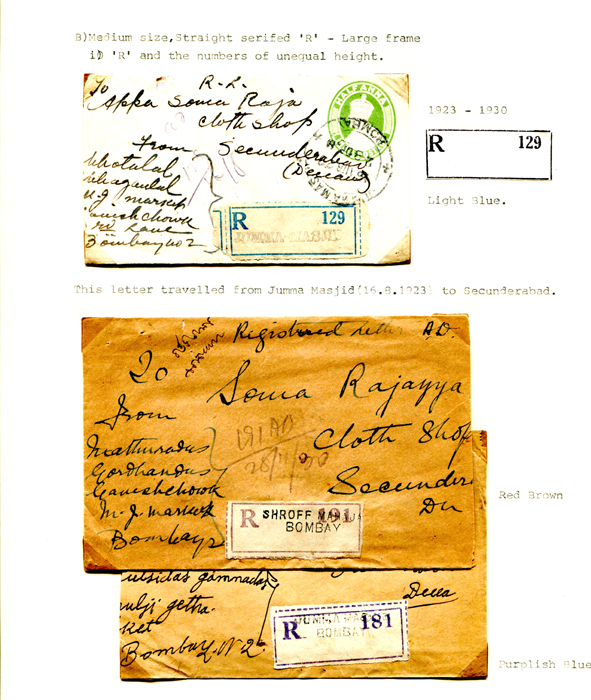 B)Medium size,Straight serifed 'R' - Large frame
i) 'R' and the numbers of unequal height.
To
R.L.
Appa Soma Raja
Cloth Shop
Secunderabad
(Deccan)
From
M.J. Market
Bombay No 2
HALF ANNA
R 129
JUMMA MASJID
1923 - 1930
R 129
Light Blue.
This letter travelled from Jumma Masjid(16.8.1923) to Secunderabad.
Registered Letter A.D.
To
Soma Rajayya
Cloth Shop
Secunder
Dn
From
Mathuradas
Gordhandas
Ganeshchowk
M.J. Market
Bombay 2
191 AD
R 191
SHROFF
BOMBAY
Red Brown
ket
Bombay N. 2
Decca
R 181
JUMMA MAS
BOMBAY
Purplish Blue